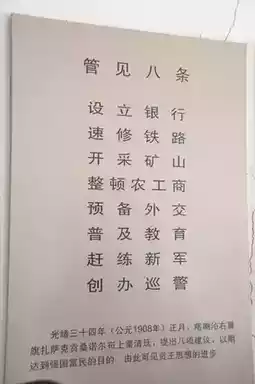 管见八条
设立银行
速修铁路
开采矿山
整顿农工商
预备外交
普及教育
赶练新军
创办巡警
光绪三十四年（公元1908年）正月，喀喇沁右翼
旗扎萨克贡桑诺尔布上奏清廷，提出八项建议，以期
达到强国富民的目的，由此可见贡王思想的进步